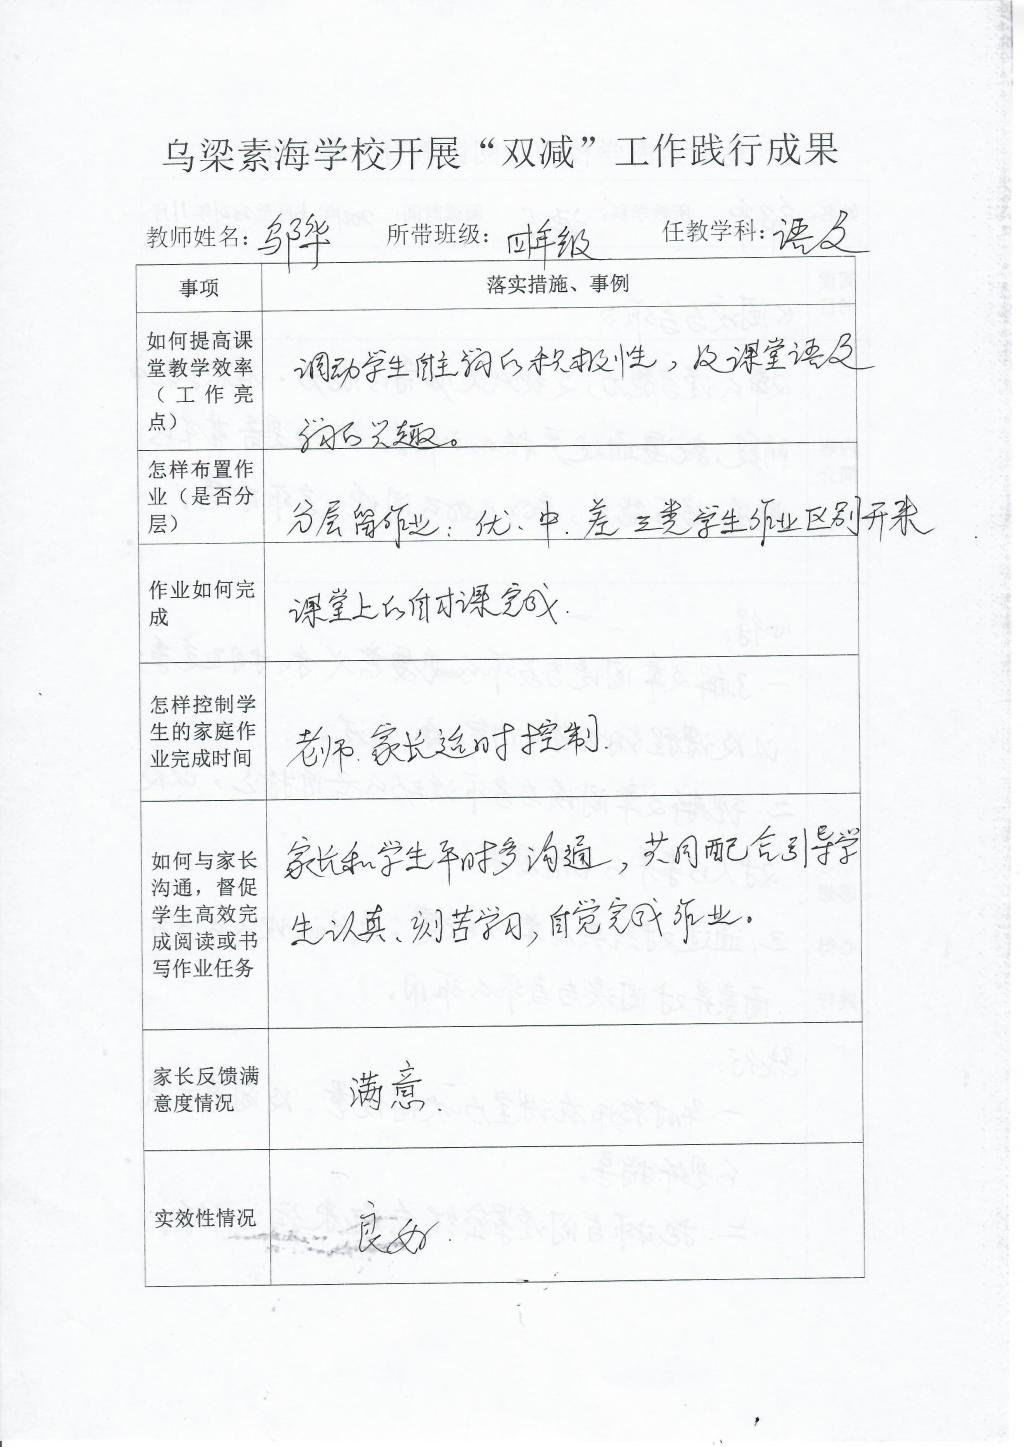 乌梁素海学校开展“双减”工作践行成果
教师姓名：邬华 所带班级：四年级 任教学科：语文
事项 落实措施、事例
如何提高课
堂教学效率
（工作亮
点）
调动学生自主学习的积极性，及课堂语文
学习的兴趣。
怎样布置作
业（是否分
层）
分层留作业：优、中、差三类学生作业区别开来
作业如何完
成
课堂上的自习课完成.
怎样控制学
生的家庭作
业完成时间
老师.家长适时控制.
如何与家长
沟通，督促
学生高效完
成阅读或书
写作业任务
家长和学生平时多沟通，共同配合引导学
生认真、刻苦学习，自觉完成作业。
家长反馈满
意度情况
满意.
实效性情况
良好.